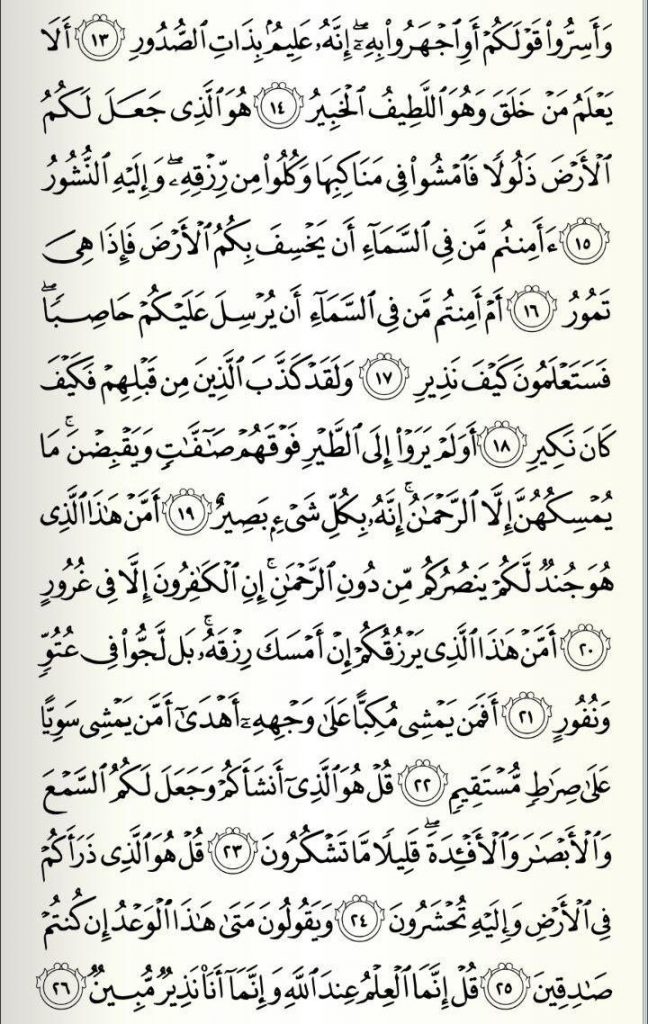 وَأَسِرُّوا۟ قَوْلَكُمْ أَوِ ٱجْهَرُوا۟ بِهِۦٓ ۖ إِنَّهُۥ عَلِيمٌۢ بِذَاتِ ٱلصُّدُورِ ١٣ أَلَا
يَعْلَمُ مَنْ خَلَقَ وَهُوَ ٱللَّطِيفُ ٱلْخَبِيرُ ١٤ هُوَ ٱلَّذِى جَعَلَ لَكُمُ
ٱلْأَرْضَ ذَلُولًا فَٱمْشُوا۟ فِى مَنَاكِبِهَا وَكُلُوا۟ مِن رِّزْقِهِۦ ۖ وَإِلَيْهِ ٱلنُّشُورُ
١٥ ءَأَمِنتُم مَّن فِى ٱلسَّمَآءِ أَن يَخْسِفَ بِكُمُ ٱلْأَرْضَ فَإِذَا هِىَ
تَمُورُ ١٦ أَمْ أَمِنتُم مَّن فِى ٱلسَّمَآءِ أَن يُرْسِلَ عَلَيْكُمْ حَاصِبًا ۖ
فَسَتَعْلَمُونَ كَيْفَ نَذِيرِ ١٧ وَلَقَدْ كَذَّبَ ٱلَّذِينَ مِن قَبْلِهِمْ فَكَيْفَ
كَانَ نَكِيرِ ١٨ أَوَلَمْ يَرَوْا۟ إِلَى ٱلطَّيْرِ فَوْقَهُمْ صَـٰٓفَّـٰتٍ وَيَقْبِضْنَ ۚ مَا
يُمْسِكُهُنَّ إِلَّا ٱلرَّحْمَـٰنُ ۚ إِنَّهُۥ بِكُلِّ شَىْءٍۭ بَصِيرٌ ١٩ أَمَّنْ هَـٰذَا ٱلَّذِى
هُوَ جُندٌ لَّكُمْ يَنصُرُكُم مِّن دُونِ ٱلرَّحْمَـٰنِ ۚ إِنِ ٱلْكَـٰفِرُونَ إِلَّا فِى غُرُورٍ
٢٠ أَمَّنْ هَـٰذَا ٱلَّذِى يَرْزُقُكُمْ إِنْ أَمْسَكَ رِزْقَهُۥ ۚ بَل لَّجُّوا۟ فِى عُتُوٍّ
وَنُفُورٍ ٢١ أَفَمَن يَمْشِى مُكِبًّا عَلَىٰ وَجْهِهِۦٓ أَهْدَىٰٓ أَمَّن يَمْشِى سَوِيًّا
عَلَىٰ صِرَٰطٍ مُّسْتَقِيمٍ ٢٢ قُلْ هُوَ ٱلَّذِىٓ أَنشَأَكُمْ وَجَعَلَ لَكُمُ ٱلسَّمْعَ
وَٱلْأَبْصَـٰرَ وَٱلْأَفْـِٔدَةَ ۖ قَلِيلًا مَّا تَشْكُرُونَ ٢٣ قُلْ هُوَ ٱلَّذِى ذَرَأَكُمْ
فِى ٱلْأَرْضِ وَإِلَيْهِ تُحْشَرُونَ ٢٤ وَيَقُولُونَ مَتَىٰ هَـٰذَا ٱلْوَعْدُ إِن كُنتُمْ
صَـٰدِقِينَ ٢٥ قُلْ إِنَّمَا ٱلْعِلْمُ عِندَ ٱللَّهِ وَإِنَّمَآ أَنَا۠ نَذِيرٌ مُّبِينٌ ٢٦